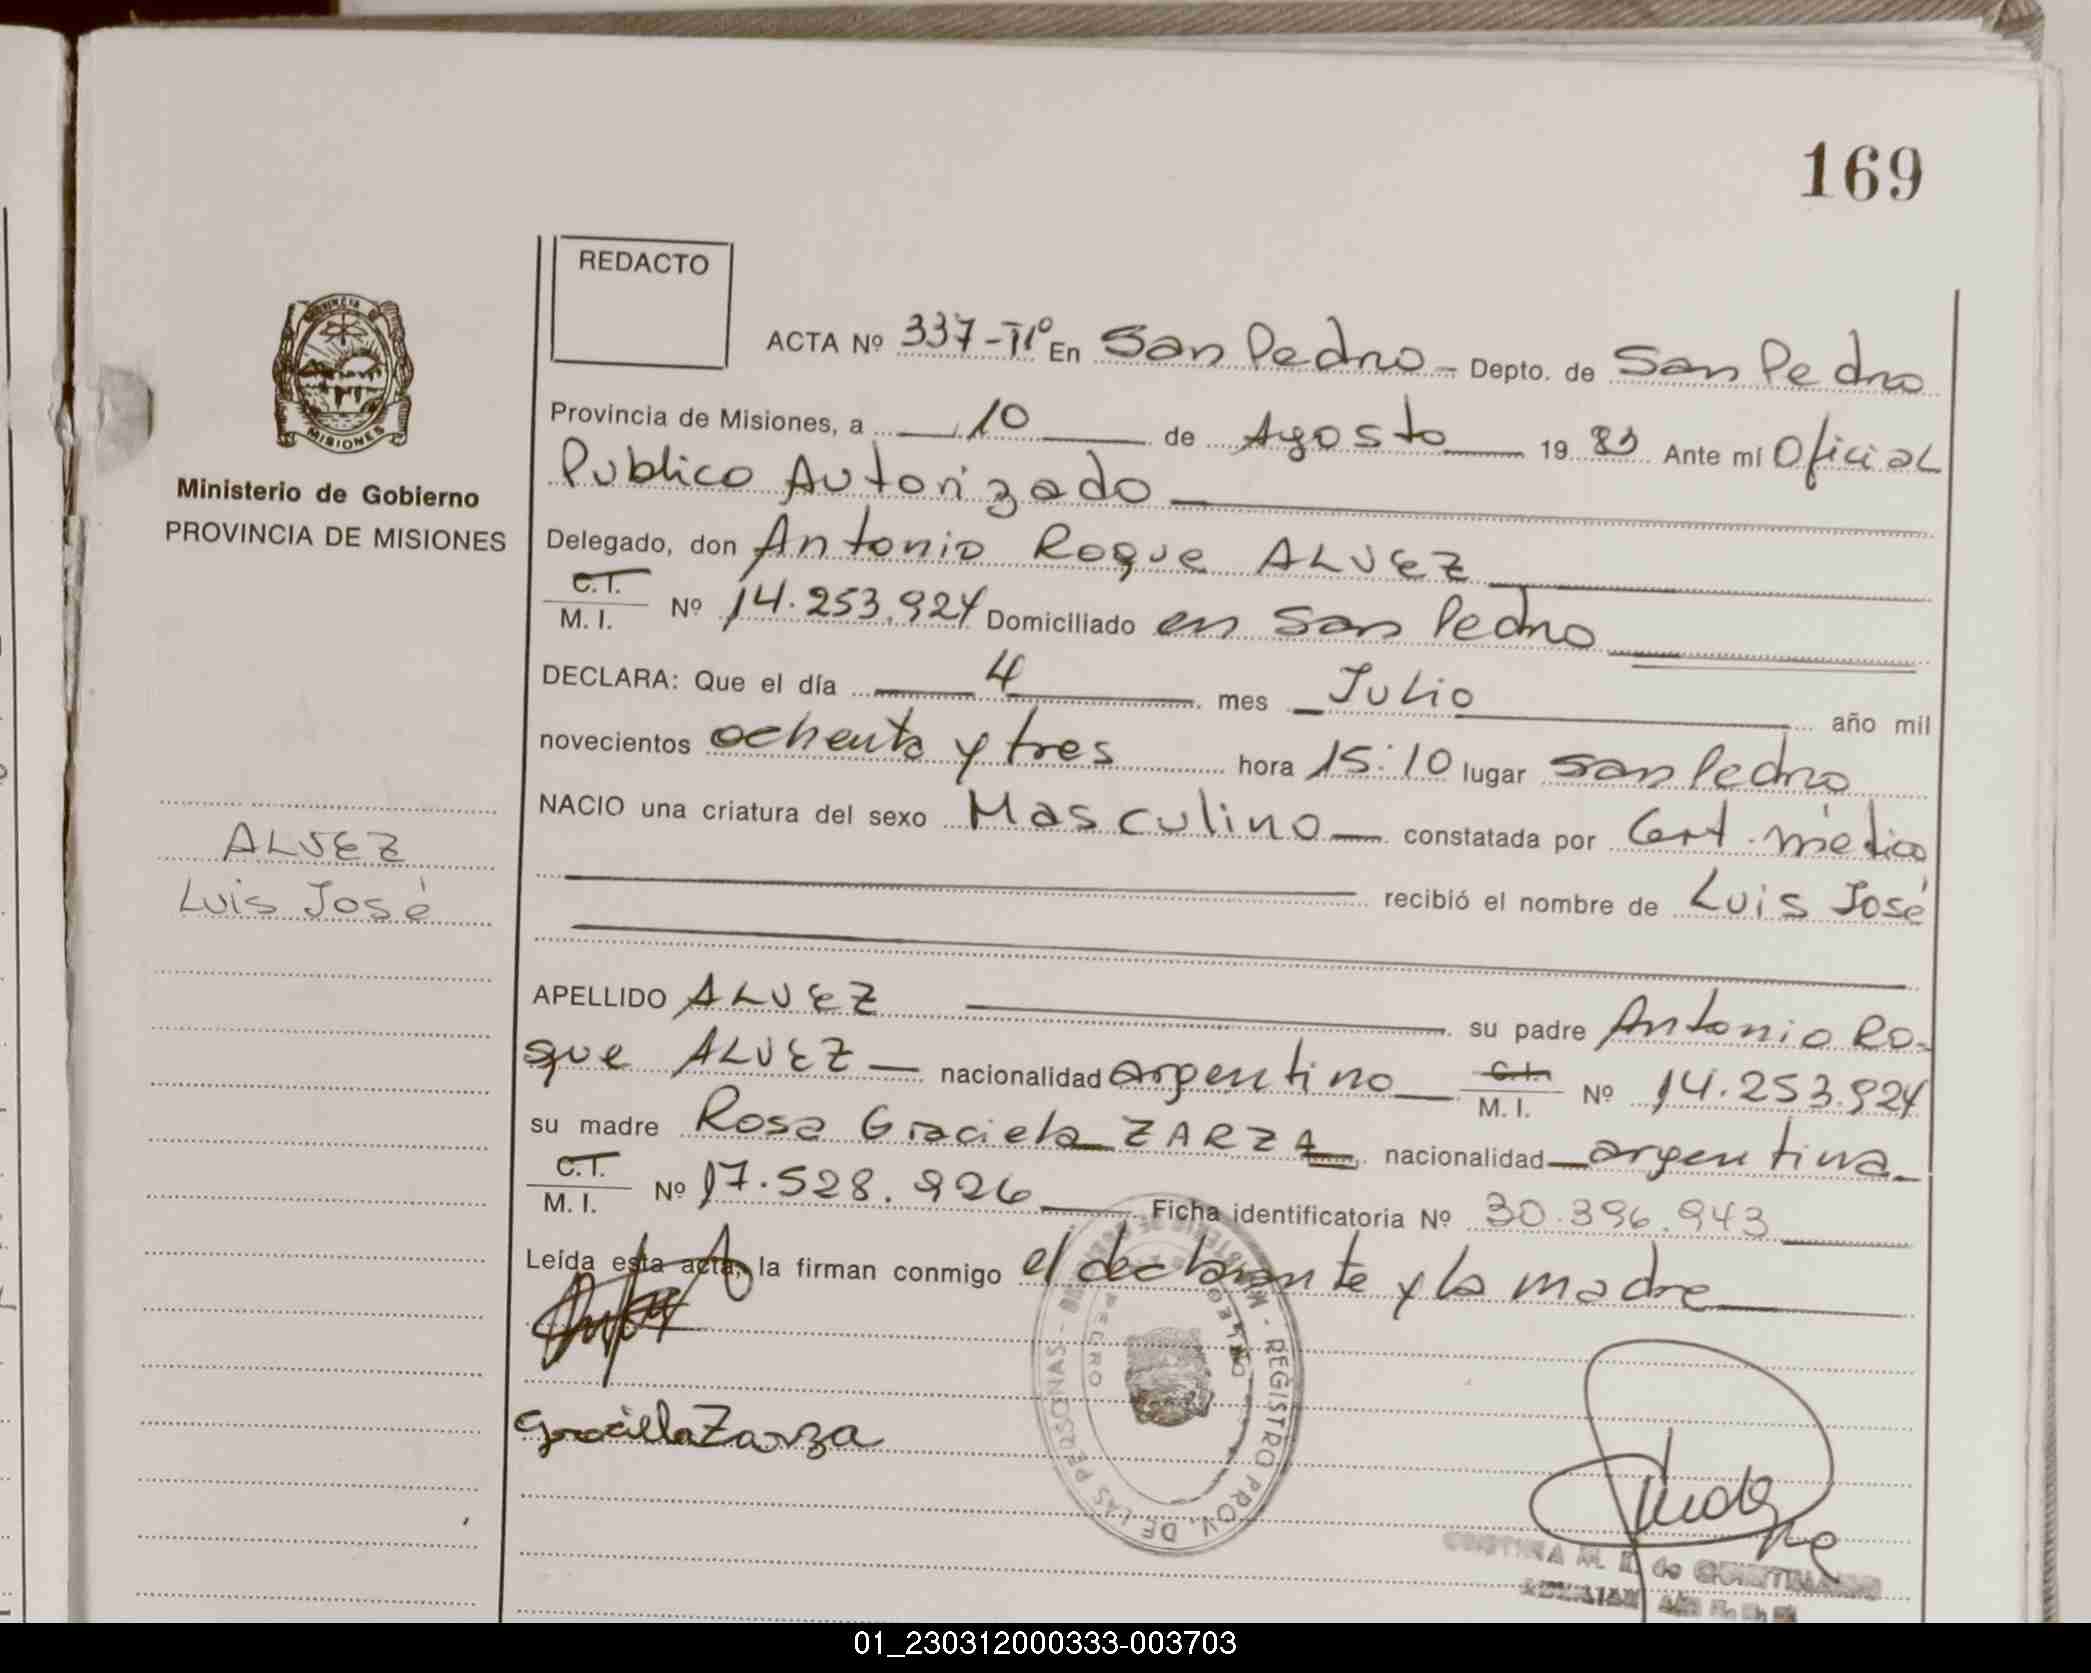 169
REDACTO
ACTA Nº 337-IIº En San Pedro - Depto. de San Pedro
Provincia de Misiones, a 10 de Agosto 1983 Ante mí Oficial
Publico Autorizado
Ministerio de Gobierno
PROVINCIA DE MISIONES
Delegado, don Antonio Roque ALVEZ
C.I.
M. I. Nº 14.253.924 Domiciliado en San Pedro
DECLARA: Que el día 4 mes Julio año mil
novecientos ochenta y tres hora 15:10 lugar San Pedro
NACIO una criatura del sexo Masculino constatada por Cert. médico
ALVEZ
Luis José
recibió el nombre de Luis José
APELLIDO ALVEZ su padre Antonio Ro-
que ALVEZ nacionalidad argentino C.I.
M. I. Nº 14.253.924
su madre Rosa Graciela ZARZA nacionalidad argentina
C.I.
M. I. Nº 17.528.926 Ficha identificatoria Nº 30.396.943
Leída esta acta, la firman conmigo el declarante y la madre
Graciela Zarza
REGISTRO PROV. DE LAS PERSONAS
MISIONES
01_230312000333-003703